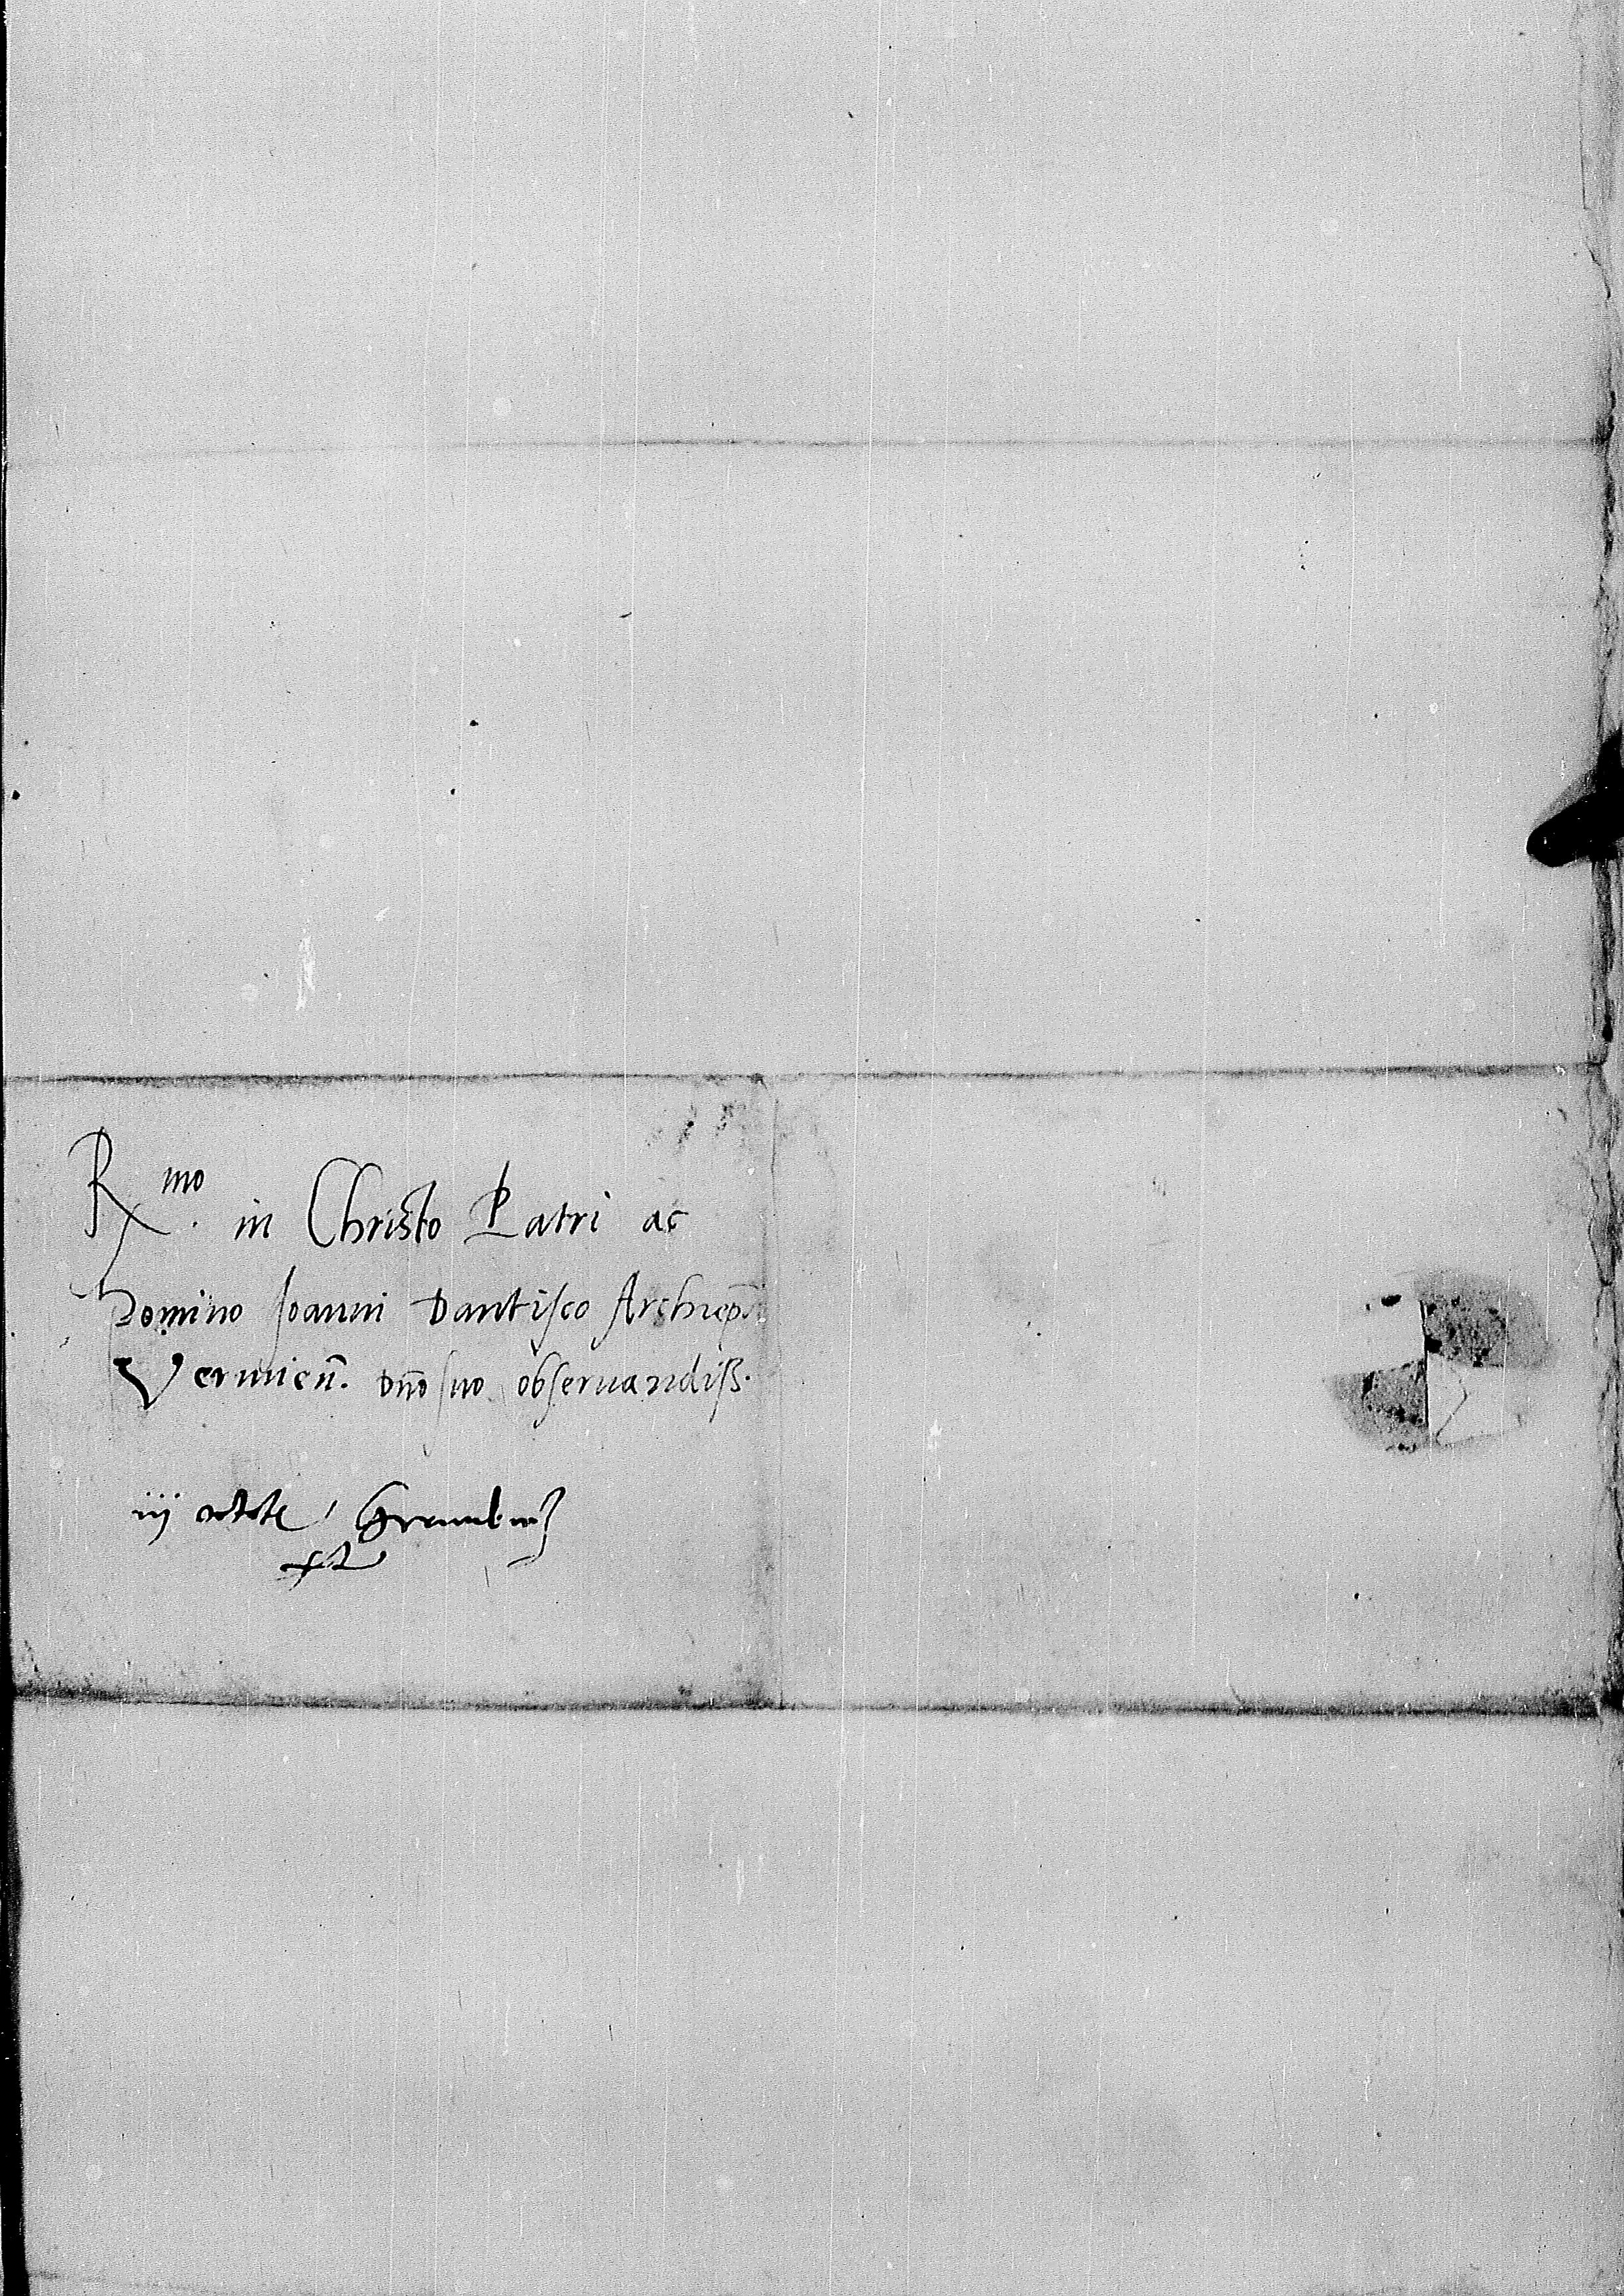 Rmo. in Christo Patri ac
Domino Joanni Dantisco Archiep̄o
Vermieñ. Dño suo obseruandiß.
iij octobr